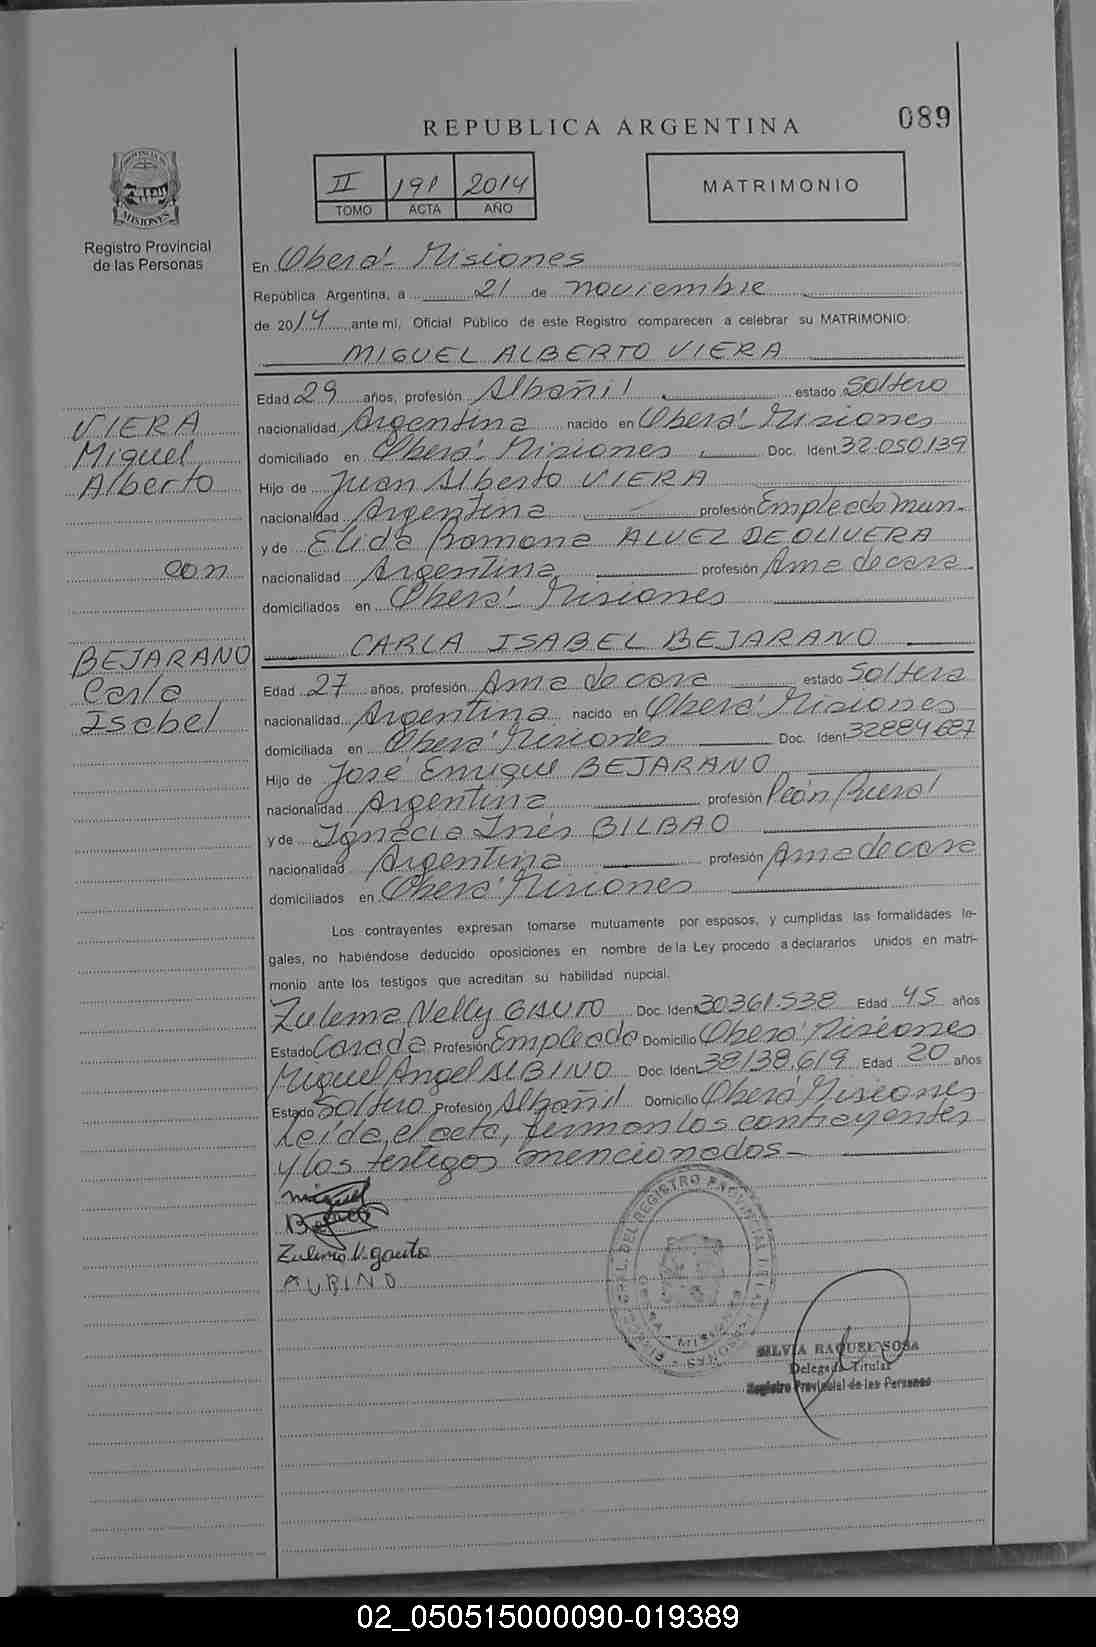 089
REPUBLICA ARGENTINA
II 191 2014
TOMO ACTA AÑO
MATRIMONIO
PROVINCIA DE
MISIONES
Registro Provincial
de las Personas
En Oberá - Misiones
República Argentina, a 21 de noviembre
de 2014 ante mi, Oficial Público de este Registro comparecen a celebrar su MATRIMONIO:
MIGUEL ALBERTO VIERA
Edad 29 años, profesión Albañil estado Soltero
nacionalidad Argentina nacido en Oberá - Misiones
domiciliado en Oberá - Misiones Doc. Ident. 32.050.139
Hijo de Juan Alberto VIERA
nacionalidad Argentina profesión Empleado Mun.
y de Elida Ramona ALVEZ DE OLIVERA
nacionalidad Argentina profesión Ama de casa
domiciliados en Oberá - Misiones
VIERA
Miguel
Alberto
con
BEJARANO
Carla
Isabel
CARLA ISABEL BEJARANO
Edad 27 años, profesión Ama de casa estado Soltera
nacionalidad Argentina nacido en Oberá Misiones
domiciliada en Oberá Misiones Doc. Ident. 32884.687
Hijo de José Enrique BEJARANO
nacionalidad Argentina profesión Peón Rural
y de Ignacia Inés BILBAO
nacionalidad Argentina profesión Ama de casa
domiciliados en Oberá Misiones
Los contrayentes expresan tomarse mutuamente por esposos, y cumplidas las formalidades le-
gales, no habiéndose deducido oposiciones en nombre de la Ley procedo a declararlos unidos en matri-
monio ante los testigos que acreditan su habilidad nupcial.
Zulema Nelly GAUTO Doc. Ident. 30.361.538 Edad 45 años
Estado Casada Profesión Empleada Domicilio Oberá Misiones
Miguel Angel ALBINO Doc. Ident. 38.138.619 Edad 20 años
Estado Soltero Profesión Albañil Domicilio Oberá Misiones
Leída el acta, firman los contrayentes
y los testigos mencionados -
Miguel
Zulema N. gauto
ALBINO
GRAL. DEL REGISTRO PROVINCIAL DE LAS PERSONAS
SILVIA RAQUEL SOSA
Delegada Titular
Registro Provincial de las Personas
02_050515000090-019389